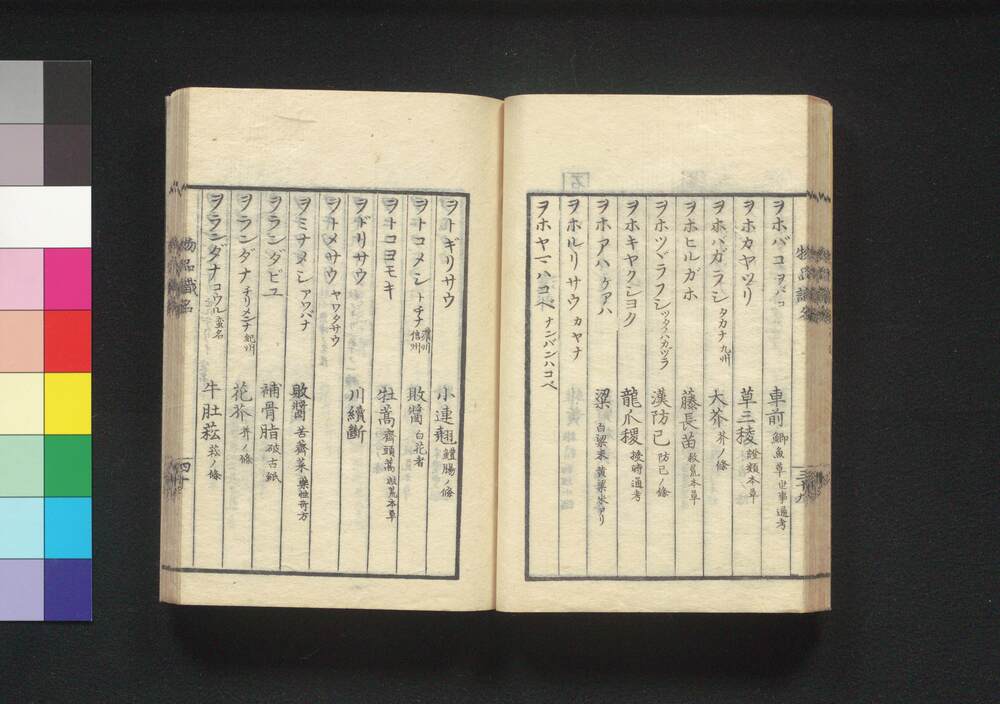 ヲホバコ ヲバコ 車前 鯽魚草 世事通考
ヲホカヤツリ 草三稜 證類本草
ヲホバガラシ タカナ 九州 大芥 芥ノ條
ヲホヒルガホ 藤長苗 救荒本草
ヲホツヾラフジ ツタノハカヅラ 漢防己 防己ノ條
ヲホキヤクシヨク 龍爪稷 授時通考
ヲホアハ ケアハ 粱 白粱米 黄粱米
ヲホルリサウ カヤナ
ヲホヤマハコベ ナンバンハコベ
物品識名
三十九
ヲトギリサウ 小連翹 鱧腸ノ條
ヲトコメシ トチナ 信州 敗醬 白花者
ヲトコヨモギ 牡蒿 齊頭蒿 救荒本草
ヲドリサウ 川續斷
ヲトメサウ ヤワタサウ
ヲミナメシ アワバナ 敗醬 苦薺菜 藥性奇方
ヲランダビユ 補骨脂 破古紙
ヲランダナ チリメンナ 紀州 花芥 芥ノ條
ヲランダナ コウル 蛮名 牛肚菘 菘ノ條
物品識名
四十